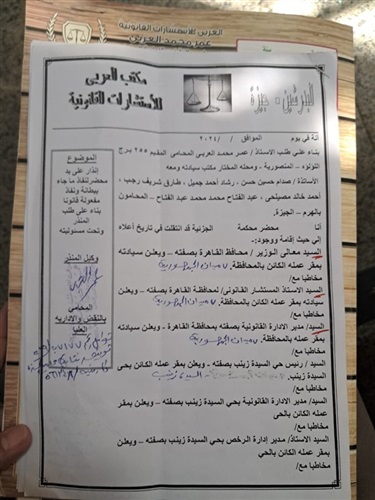 العربي للاستشارات القانونية
عمر محمد العربي
مكتب العربى
للأستشارات القانونية
البدرشين - جيزة
الموضوع
إنذار على يد
محضر لنفاذ ما جاء
ببطانة ونفاذ
مفعولة قانونا
بناء على طلب
المنذر
وتحت مسئوليته
وكيل المنذر
المحامي
بالنقض والادارية
العليا
أنة في يوم الموافق / / ٢٠٢٤
بناء على طلب الاستاذ / عمر محمد العربي المحامي المقيم ٢٥٥ برج
اللؤلؤة – المنصورية - ومحله المختار مكتب سيادته ومعه
الاساتذة / صدام حسين حسن ، رشاد أحمد جميل ، طارق شريف رجب ،
أحمد خالد مصيلحي ، عبد الفتاح محمد عبد الفتاح – المحامون
بالهرم – الجيزة.
أنا محضر محكمة الجزئية قد انتقلت في تاريخ أعلاه
إلي حيث إقامة ووجود:-
السيد معالي الوزير / محافظ القاهرة بصفته – ويعلن سيادته
بمقر عمله الكائن بالمحافظة.
مخاطبا مع/
السيد الاستاذ المستشار القانوني/ لمحافظة القاهرة بصفته – ويعلن
سيادته بمقر عمله الكائن بالمحافظة.
مخاطبا مع/
السيد/ مدير الادارة القانونية بصفته بمحافظة القاهرة - ويعلن سيادته
بمقر عمله الكائن بالمحافظة.
مخاطبا مع/
السيد / رئيس حي السيدة زينب بصفته – ويعلن بمقر عمله الكائن بحى
السيدة زينب.
مخاطبا مع/
السيد/ مدير الادارة القانونية بحي السيدة زينب بصفته – ويعلن بمقر
عمله الكائن بالحى
مخاطبا مع/
السيد الاستاذ/ مدير إدارة الرخص بحي السيدة زينب بصفته – ويعلن
بمقر عمله الكائن بالحى
مخاطبا مع/